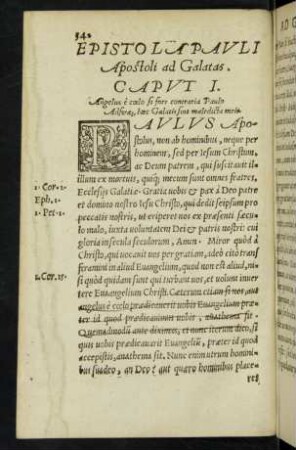 54.
EPISTOLA PAVLI
Apostoli ad Galatas.
CAPVT I.
Angelus è cœlo si
PAVLVS Apo-
stolus, non ab hominibus, neque per
hominem, sed per Iesum Christum,
ac Deum patrem, qui suscitauit il-
illum ex mortuis, quiq; mecum sunt omnes fratres,
1. Cor. 1.
Ecclesijs Galatiæ. Gratia uobis & pax à Deo patre
Eph. 1.
et domino nostro Iesu Christo, qui dedit seipsum pro
1. Pet. 1.
peccatis nostris, ut eriperet nos ex præsenti sæcu-
lo malo, iuxta uoluntatem Dei & patris nostri: cui
gloria in secula seculorum, Amen. Miror quòd à
Christo, qui uocauit uos per gratiam, ideò cito trans-
feramini in aliud Euangelium, quod non est aliud, ni-
2. Cor. 15.
si quòd quidam sunt qui turbant uos, et uolunt inuer
tere Euangelium Christi. Cæterum etiam si nos, aut
angelus è cœlo prædicauerit uobis Euangelium præ-
ter id quod prædicauimus uobis, anathema sit.
Quemadmodū ante diximus, et nunc iterum dico, si
quis uobis prædicauerit Euangeliū, præter id quod
accepistis, anathema sit. Nunc enim utrum homini-
bus suadeo, an Deo? aut quæro hominibus place-
re?